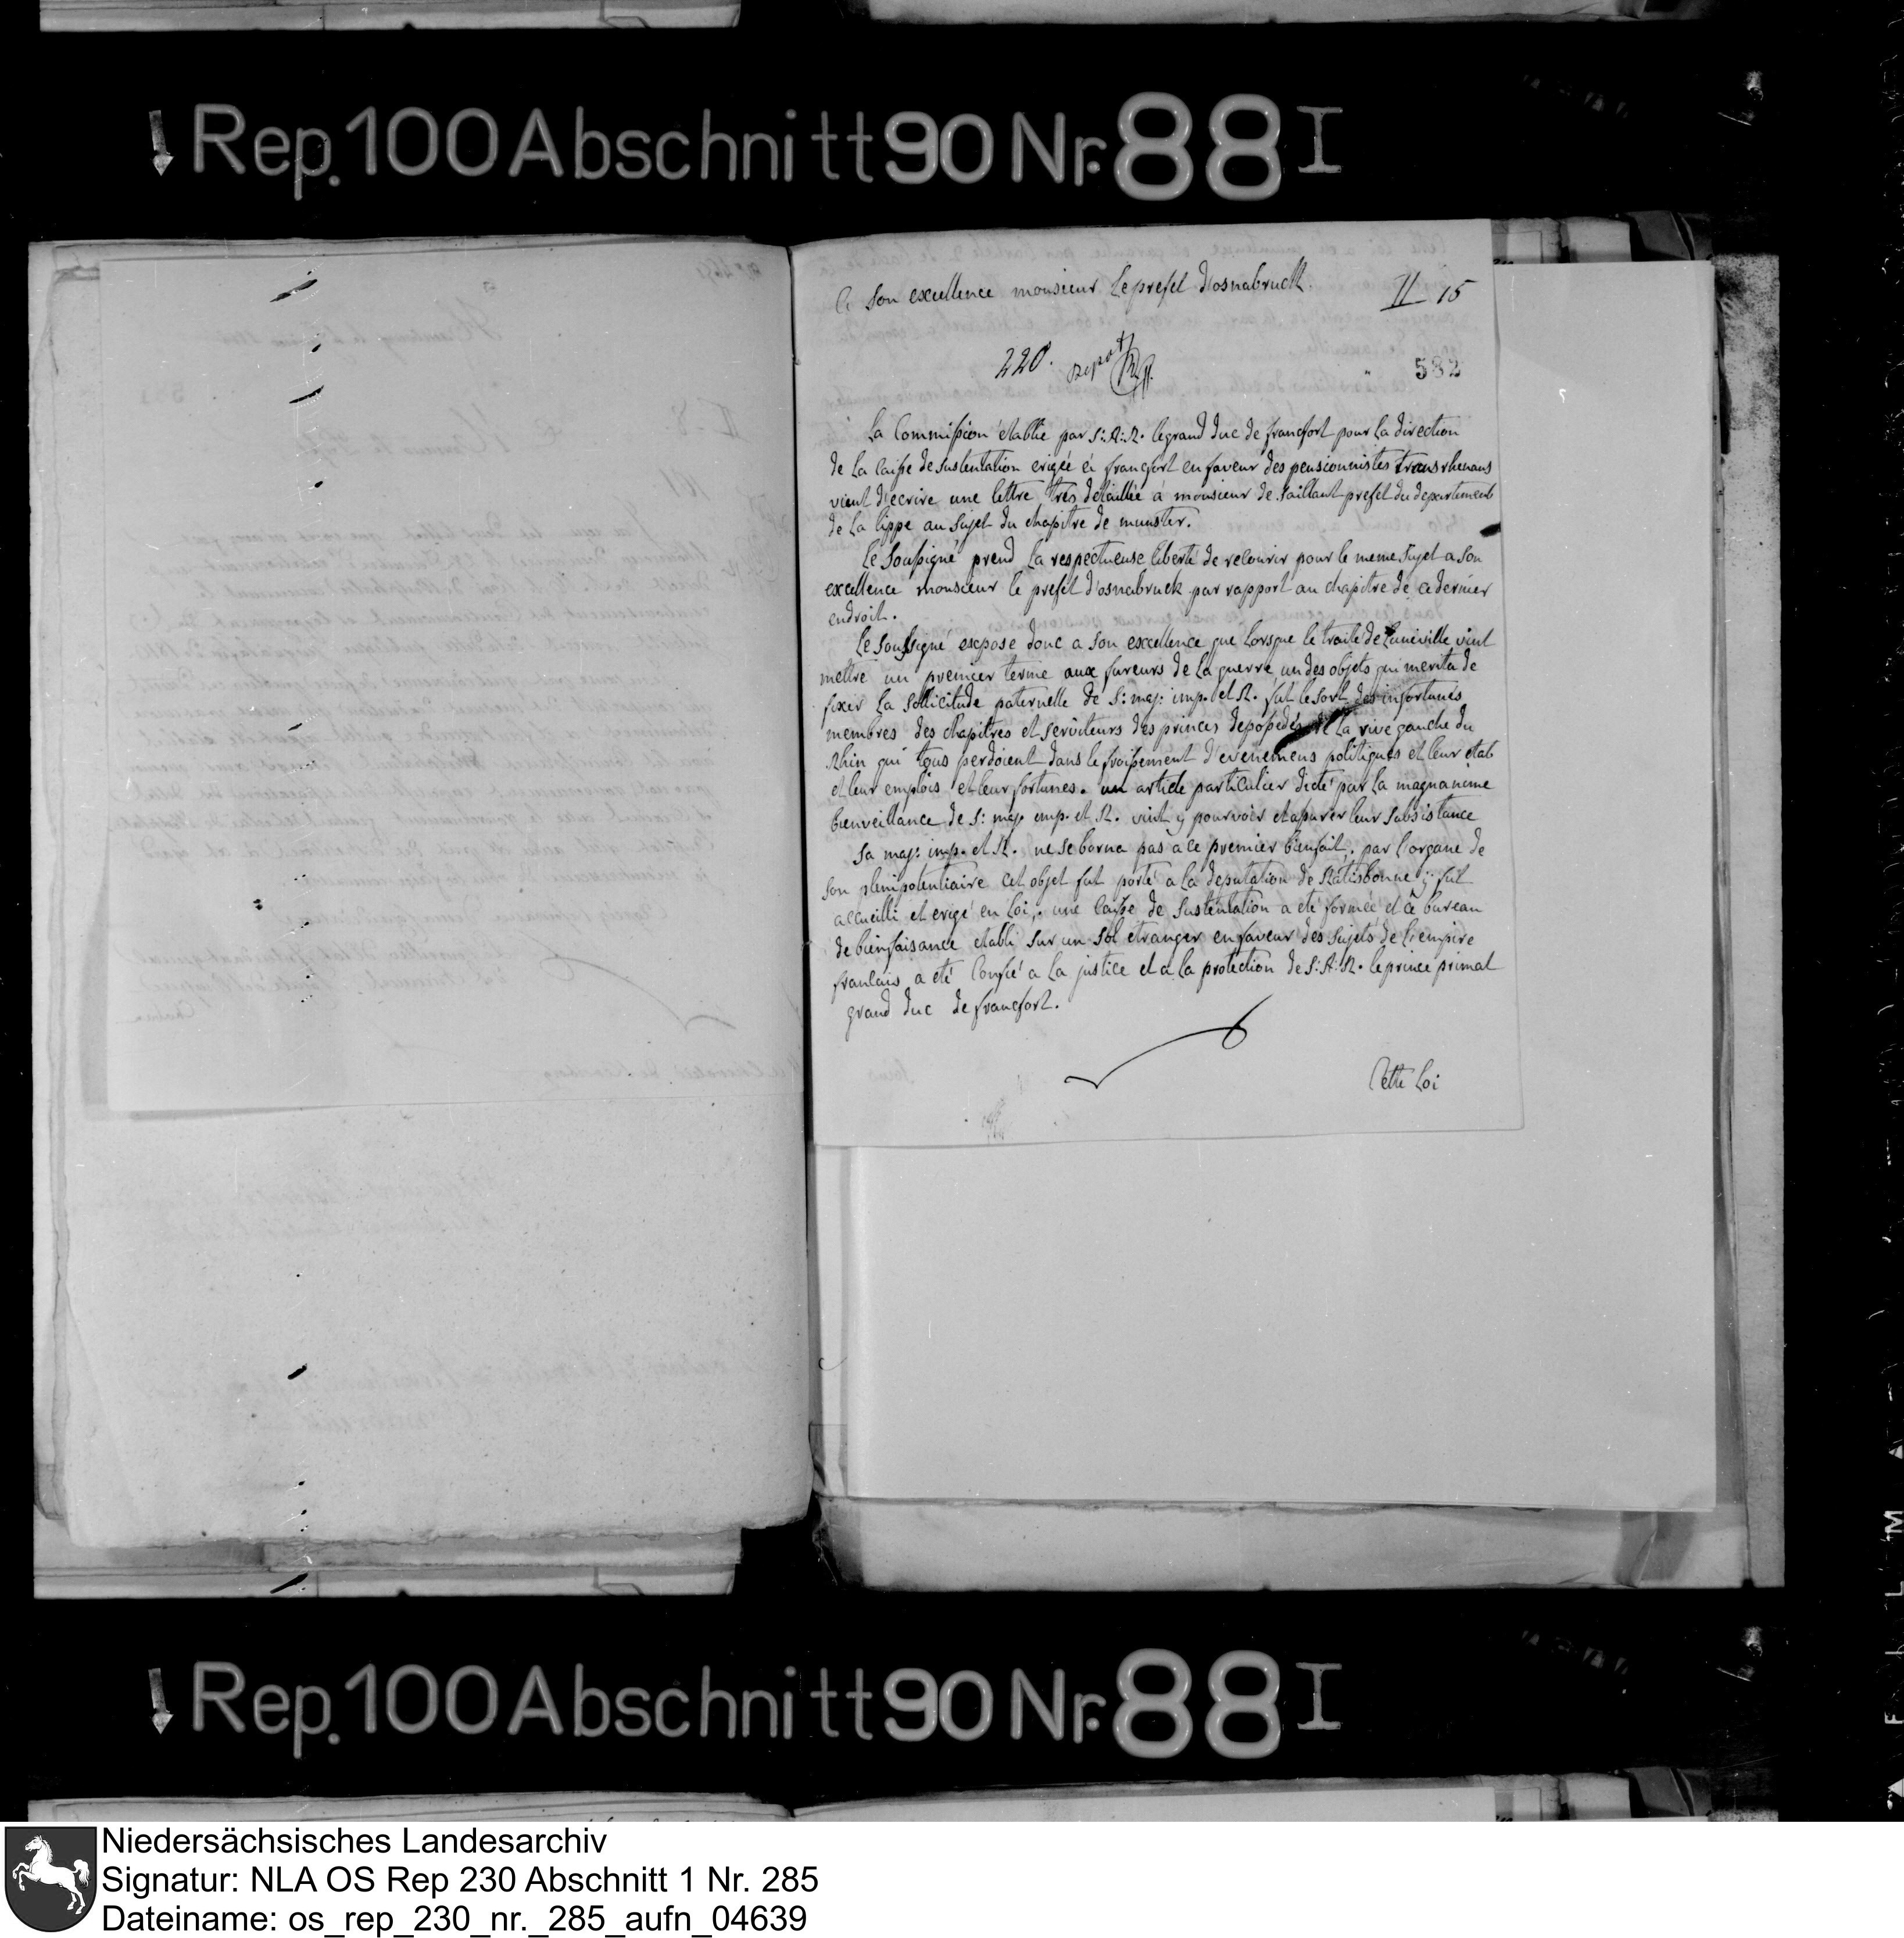 Rep. 100 Abschnitt 90 Nr. 88 I
a son excellence monsieur Le prefet D'osnabruck.
II 15
220.
582
La Commission etablie par S: A: R. le grand duc de francfort pour La direction
de La Caisse de sustentation erigée á francfort en faveur des pensionnistes transrhenans
vient d'ecrire une lettre trés detaillée á monsieur de Saillant prefet du departement
de La lippe au sujet du chapitre de munster.
Le Soussigné prend La respectueuse liberté de recourir pour le meme sujet a Son
excellence monsieur le prefet d'osnabruck par rapport au chapitre de ce dernier
endroit.
Le Soussigné expose donc a son excellence que Lorsque le traite de Luneville vint
mettre un premier terme aux fureurs de La guerre, un des objets qui merita de
fixer La Sollicitude paternelle de S: maj: imp. et R. fut le sort des infortunés
membres des chapitres et serviteurs des princes depossedés de La rive gauche du
Rhin qui tous perdoient dans le froissement d'evenemens politiques et leur etat
et leur emplois et leur fortunes. un article particulier dicté par La magnanime
bienveillance de S: maj. imp. et R. vint y pourvoir et assurer leur subsistance
Sa maj: imp. et R. ne se borna pas a ce premier bienfait. par l'organe de
son plenipotentiaire cet objet fut porté a La deputation de Ratisbonne y fut
accueilli et erigé en Loi. une Caisse de Sustentation a eté formée et ce bureau
de bienfaisance etabli sur un sol etranger en faveur des sujets de l'empire
francais a eté Confié a La justice et a La protection de S: A: R. le prince primat
grand duc de francfort.
Cette Loi
Rep. 100 Abschnitt 90 Nr. 88 I
Niedersächsisches Landesarchiv
Signatur: NLA OS Rep 230 Abschnitt 1 Nr. 285
Dateiname: os_rep_230_nr._285_aufn_04639